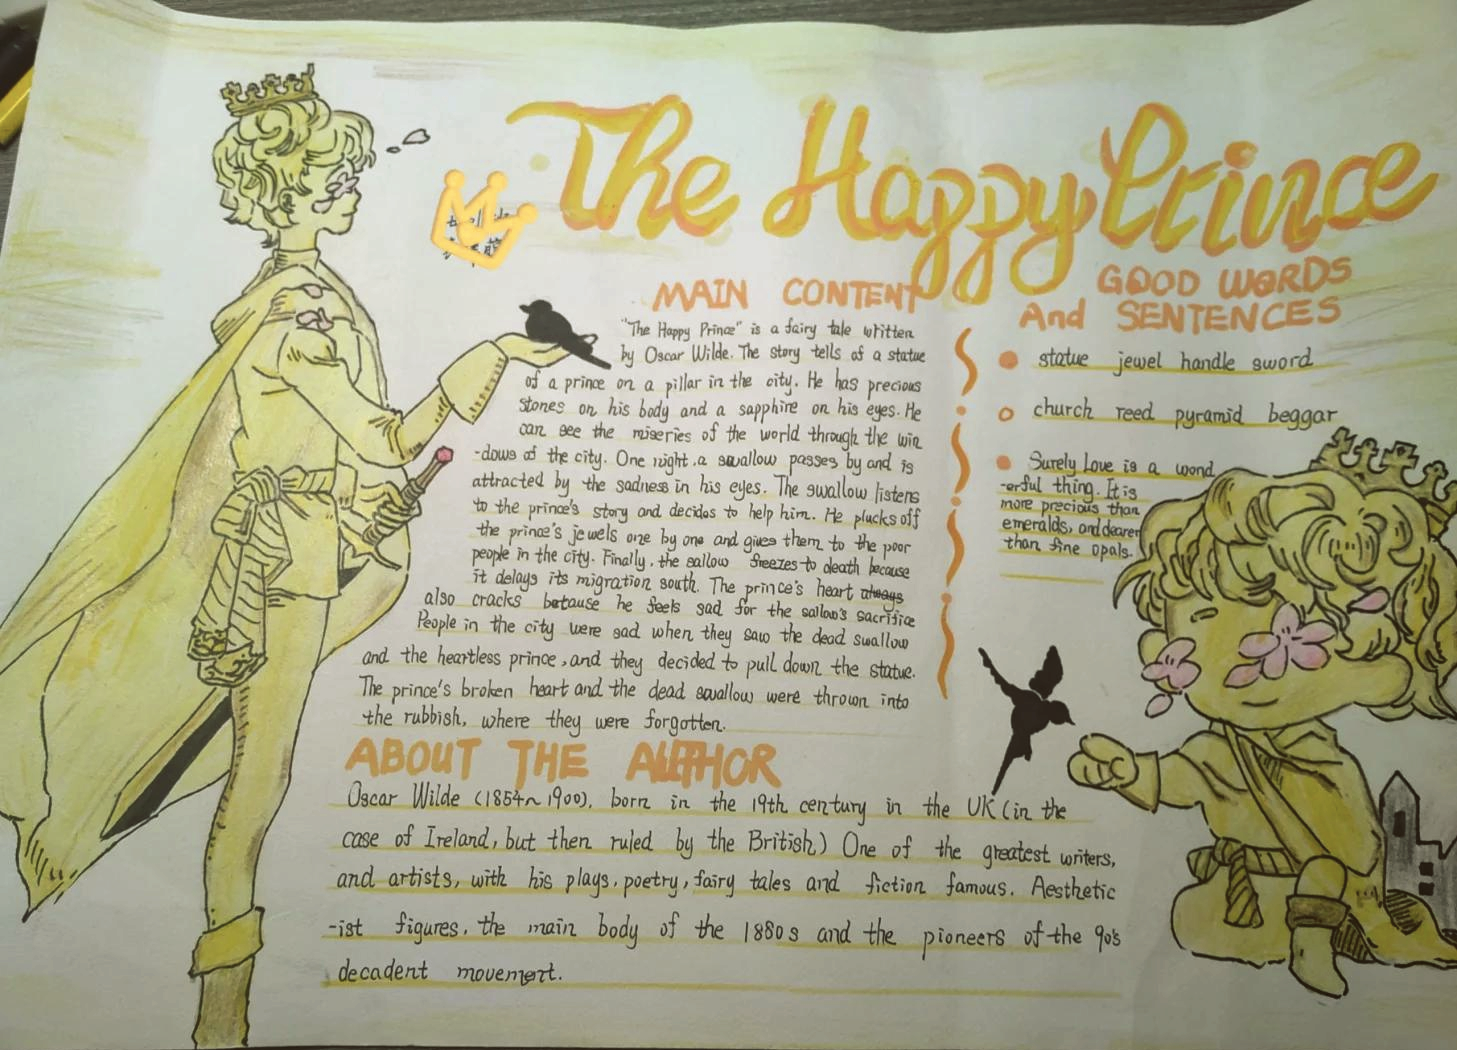 The Happy Prince
MAIN CONTENT
"The Happy Prince" is a fairy tale written
by Oscar Wilde. The story tells of a statue
of a prince on a pillar in the city. He has precious
stones on his body and a sapphire on his eyes. He
can see the miseries of the world through the win
-dows of the city. One night, a swallow passes by and is
attracted by the sadness in his eyes. The swallow listens
to the prince's story and decides to help him. He plucks off
the prince's jewels one by one and gives them to the poor
people in the city. Finally, the sallow freezes to death because
it delays its migration south. The prince's heart always
also cracks because he feels sad for the sallow's sacrifice
People in the city were sad when they saw the dead swallow
and the heartless prince, and they decided to pull down the statue.
The prince's broken heart and the dead swallow were thrown into
the rubbish, where they were forgotten.
GOOD WORDS
And SENTENCES
statue jewel handle sword
church reed pyramid beggar
Surely Love is a wond
-erful thing. It is
more precious than
emeralds, and dearer
than fine opals.
ABOUT THE AUTHOR
Oscar Wilde (1854~1900), born in the 19th century in the UK (in the
case of Ireland, but then ruled by the British) One of the greatest writers,
and artists, with his plays, poetry, fairy tales and fiction famous. Aesthetic
-ist figures, the main body of the 1880s and the pioneers of the 90's
decadent movement.